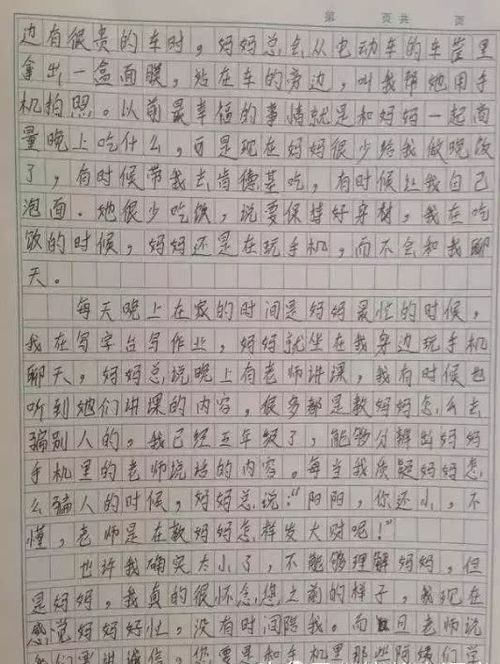 第 页 共 页
边有很贵的车时，妈妈总会从电动车的车筐里
拿出一盒面膜，站在车的旁边，叫我帮她用手
机拍照。以前最幸福的事情就是和妈妈一起商
量晚上吃什么，可是现在妈妈很少给我做晚饭
了，有时候带我去肯德基吃，有时候让我自己
泡面。她很少吃饭，说要保持好身材，我在吃
饭的时候，妈妈还是在玩手机，而不会和我聊
天。
每天晚上在家的时间是妈妈最忙的时候，
我在写字台写作业，妈妈就坐在我身边玩手机
聊天，妈妈总说晚上有老师讲课，我有时候也
听到她们讲课的内容，很多都是教妈妈怎么去
骗别人的，我已经五年级了，能够分辨出妈妈
手机里的老师说话的内容。每当我质疑妈妈怎
么骗人的时候，妈妈总说：“阳阳，你还小，不
懂，老师是在教妈妈怎样发大财呢！”
也许我确实太小了，不能够理解妈妈，但
是妈妈，我真的很怀念您之前的样子，我现在
感觉妈妈好忙，没有时间陪我。而且老师说
我们要讲诚信，您要是和手机里那些阿姨们学